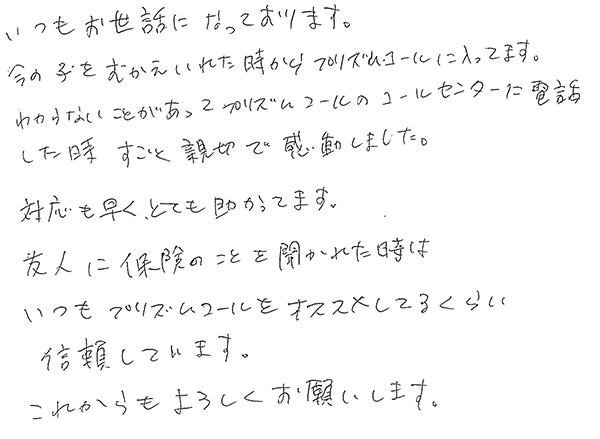 いつもお世話になっております。
今の子をむかえいれた時からプリズムコールに入ってます。
わからないことがあってプリズムコールのコールセンターに電話
した時 すごく親切で感動しました。
対応も早く、とても助かってます。
友人に保険のことを聞かれた時は
いつもプリズムコールをオススメしてるくらい
信頼しています。
これからもよろしくお願いします。